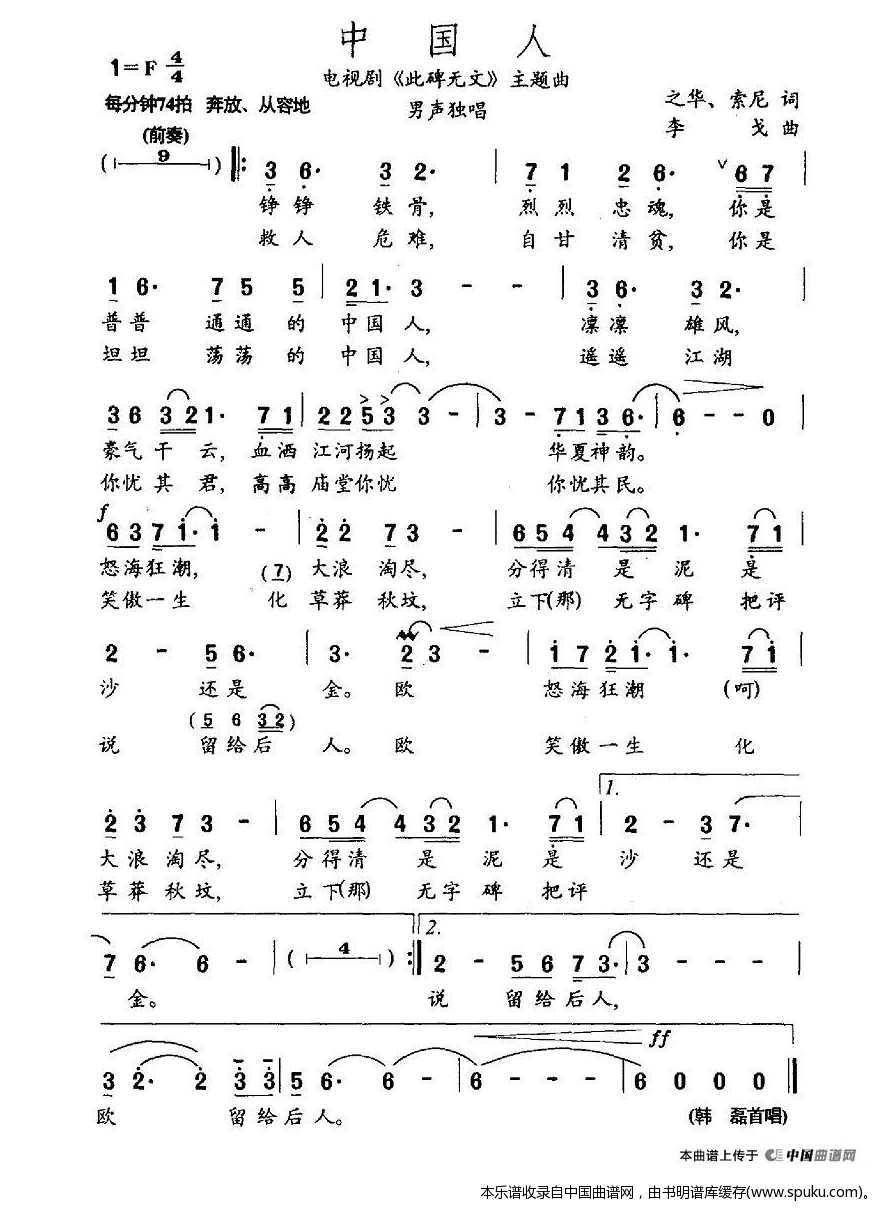 中 国 人
1=F 4/4
电视剧《此碑无文》主题曲
每分钟74拍 奔放、从容地
男声独唱
之华、索尼 词
李 戈 曲
(前奏)
( 9 ) 𝄆 3 6· 3 2· | 7 1 2 6· ∨ 6 7 |
铮铮 铁骨, 烈烈忠魂, 你是
救人 危难, 自甘清贫, 你是
1 6· 7 5 5 | 2 1· 3 - - | 3 6· 3 2· |
普普 通通的 中国人, 凛凛 雄风,
坦坦 荡荡的 中国人, 遥遥 江湖
3 6 3 2 1· 7 1 | 2 2 5 3 3 - | 3 - 7 1 3 6· | 6 - - 0
豪气干云, 血洒 江河扬起 华夏神韵。
你忧其君, 高高 庙堂你忧 你忧其民。
f
6 3 7 1· 1 - | 2 2 7 3 - | 6 5 4 4 3 2 1· 7 1 |
怒海狂潮, (7) 大浪 淘尽, 分得清 是 泥 是
笑傲一生 化 草莽 秋坟, 立下(那) 无字碑 把评
2 - 5 6· | 3· 2 3 - | 1 7 2 1· 1· 7 1 |
沙 还是 金。欧 怒海狂潮 (呵)
(5 6 3 2)
说 留给后 人。欧 笑傲一生 化
1.
2 3 7 3 - | 6 5 4 4 3 2 1· 7 1 | 2 - 3 7·
大浪淘尽, 分得清 是 泥 是 沙 还是
草莽秋坟, 立下(那) 无字碑 把评
2.
7 6· 6 - | ( 4 ) 𝄇 2 - 5 6 7 3· | 3 - - - |
金。 说 留给后人,
ff
3 2· 2 3 3 | 5 6· 6 - | 6 - - - | 6 0 0 0 ‖
欧 留给后人。
(韩 磊首唱)
本曲谱上传于 中国曲谱网
本乐谱收录自中国曲谱网，由书明谱库缓存(www.spuku.com)。